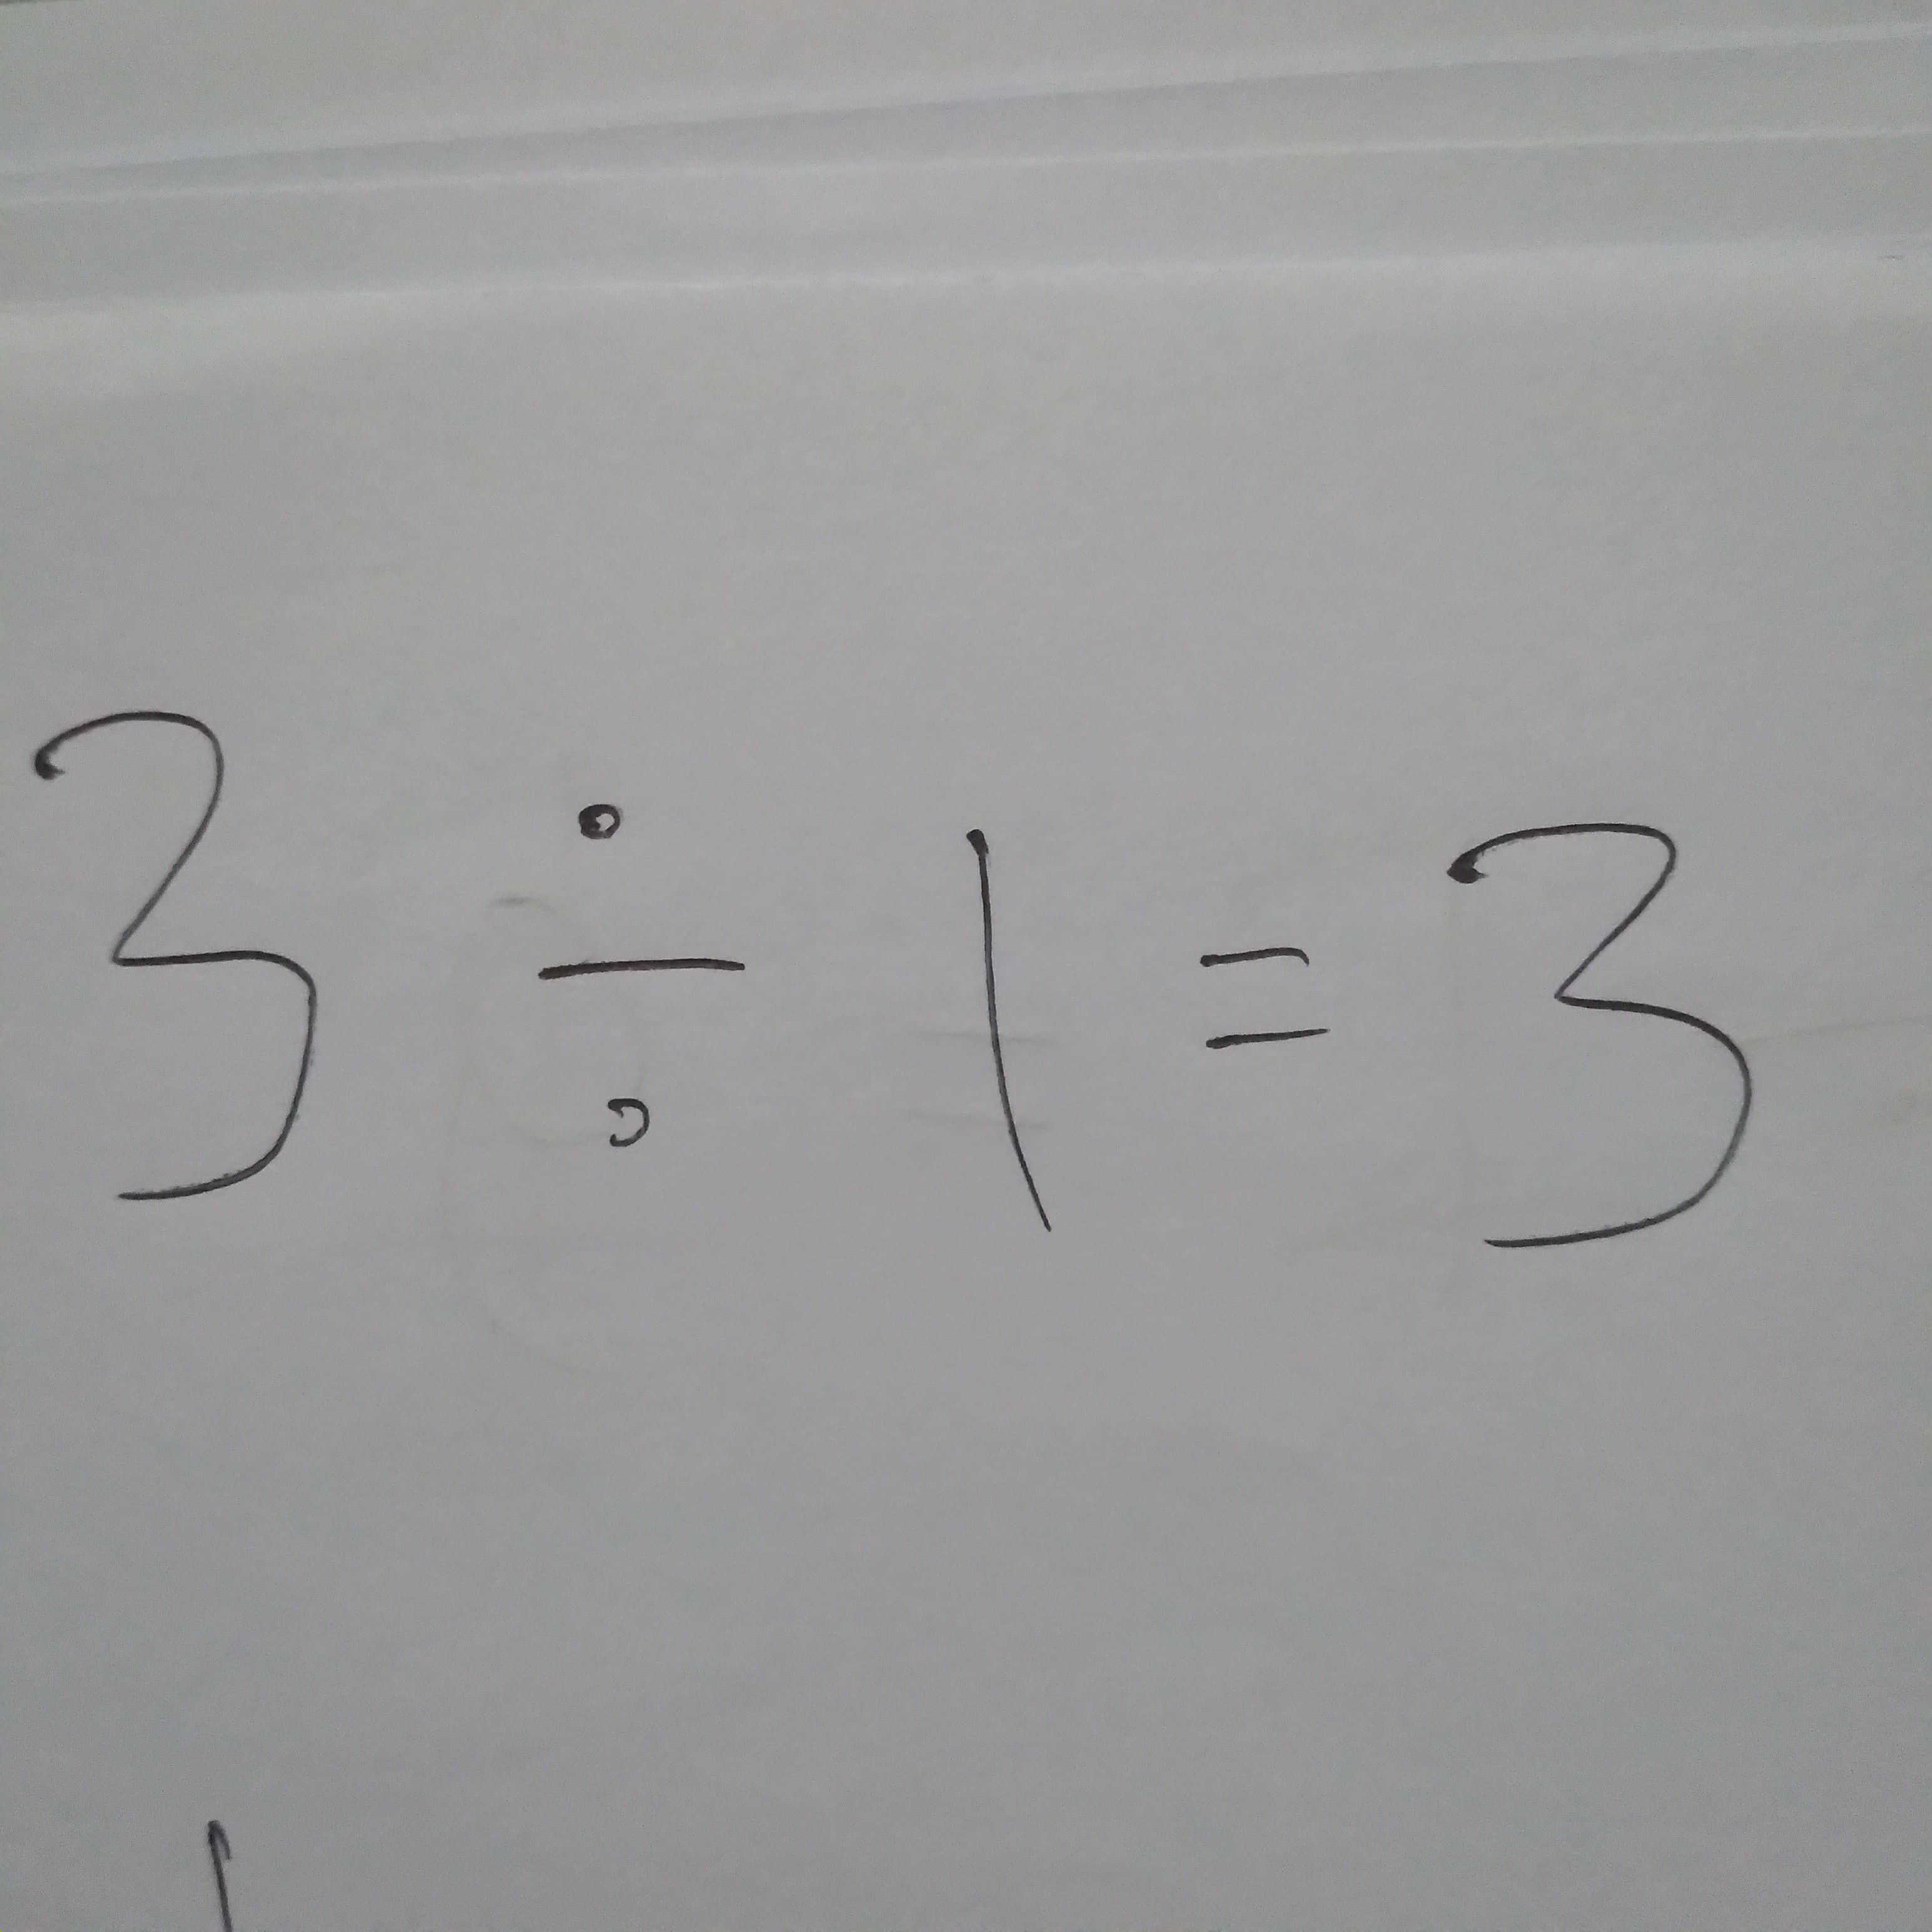 3 ÷ 1 = 3